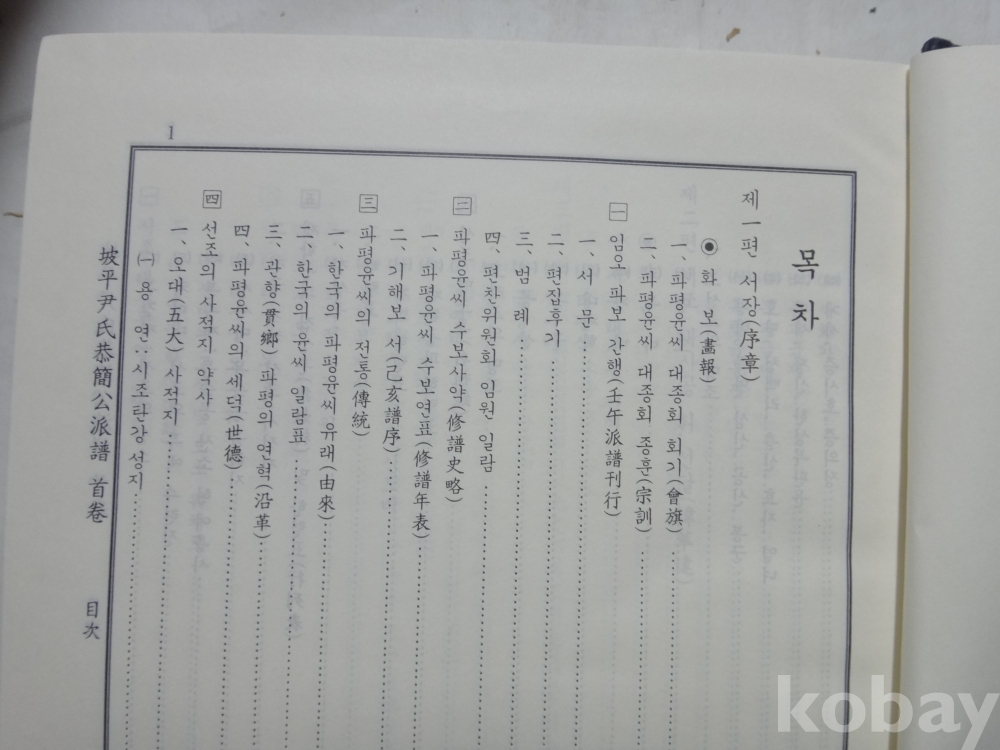 목차
제一편 서장(序章)
◉ 화 보(畵報)
一、파평윤씨 대종회 회기(會旗)
二、파평윤씨 대종회 종훈(宗訓)
一 임오 파보 간행(壬午派譜刊行)
一、서 문
二、편집후기
三、범 례
四、편찬위원회 임원 일람
二 파평윤씨 수보사약(修譜史略)
一、파평윤씨 수보연표(修譜年表)
二、기해보 서(己亥譜序)
三 파평윤씨의 전통(傳統)
一、한국의 파평윤씨 유래(由來)
二、한국의 윤씨 일람표
三、관향(貫鄕) 파평의 연혁(沿革)
四、파평윤씨의 세덕(世德)
四 선조의 사적지 약사
一、오대(五大) 사적지
㈠ 용 연:시조탄강 성지
坡平尹氏恭簡公派譜 首卷 目次
1
kobay